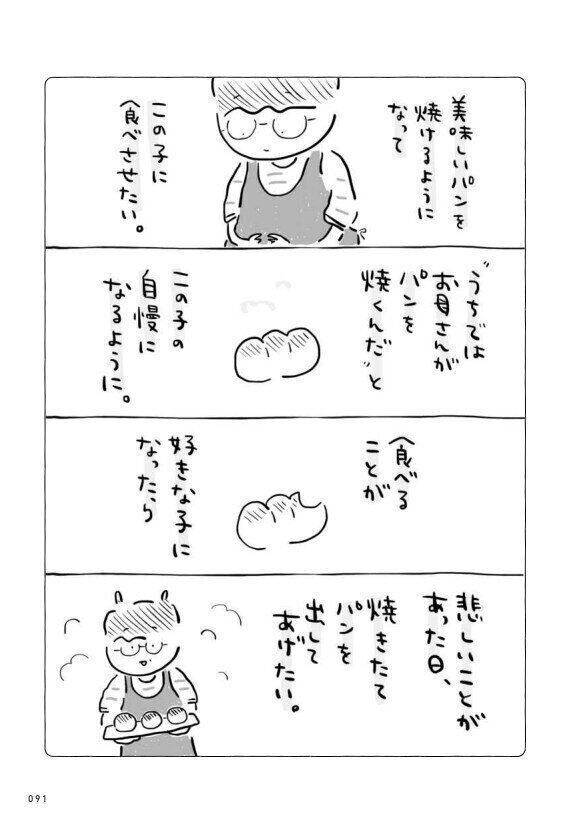 美味しいパンを
焼けるように
なって
この子に
食べさせたい。
“うちでは
お母さんが
パンを
焼くんだ”と
この子の
自慢に
なるように。
食べる
ことが
好きな子に
なったら
悲しいことが
あった日、
焼きたて
パンを
出して
あげたい。
091